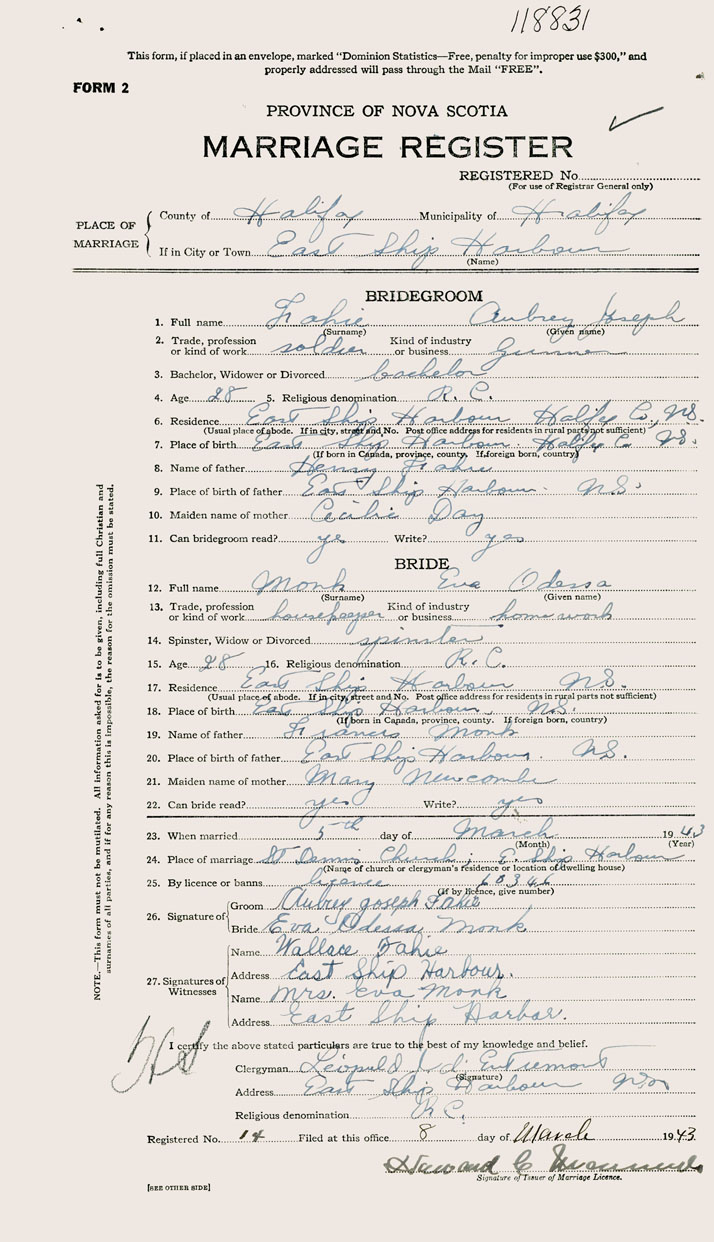 118831
This form, if placed in an envelope, marked "Dominion Statistics—Free, penalty for improper use $300," and
properly addressed will pass through the Mail "FREE".
FORM 2
PROVINCE OF NOVA SCOTIA
MARRIAGE REGISTER
REGISTERED No.
(For use of Registrar General only)
PLACE OF MARRIAGE
County of Halifax Municipality of Halifax
If in City or Town East Ship Harbour
(Name)
BRIDEGROOM
1. Full name Fahie Aubrey Joseph
(Surname) (Given name)
2. Trade, profession or kind of work soldier Kind of industry or business Gunner
3. Bachelor, Widower or Divorced bachelor
4. Age 28 5. Religious denomination R.C.
6. Residence East Ship Harbour Halifax Co, N.S.
(Usual place of abode. If in city, street and No. Post office address for residents in rural parts not sufficient)
7. Place of birth East Ship Harbour Halifax Co N.S.
(If born in Canada, province, county. If foreign born, country)
8. Name of father Henry Fahie
9. Place of birth of father East Ship Harbour N.S.
10. Maiden name of mother Cecilie Day
11. Can bridegroom read? yes Write? yes
BRIDE
12. Full name Monk Eva Odessa
(Surname) (Given name)
13. Trade, profession or kind of work housekeeper Kind of industry or business homework
14. Spinster, Widow or Divorced spinster
15. Age 28 16. Religious denomination R.C.
17. Residence East Ship Harbour N.S.
(Usual place of abode. If in city, street and No. Post office address for residents in rural parts not sufficient)
18. Place of birth East Ship Harbour N.S.
(If born in Canada, province, county. If foreign born, country)
19. Name of father Francis Monk
20. Place of birth of father East Ship Harbour N.S.
21. Maiden name of mother Mary Newcombe
22. Can bride read? yes Write? yes
23. When married 5th day of March 1943
(Month) (Year)
24. Place of marriage St Denis Church, E. Ship Harbour
(Name of church or clergyman's residence or location of dwelling house)
25. By licence or banns licence 60346
(If by licence, give number)
26. Signature of
Groom Aubrey Joseph Fahie
Bride Eva Odessa Monk
27. Signatures of Witnesses
Name Wallace Fahie
Address East Ship Harbour.
Name Mrs. Eva Monk
Address East Ship Harbor.
I certify the above stated particulars are true to the best of my knowledge and belief.
Clergyman Léopold J. d'Entremont
(Signature)
Address East Ship Harbour
Religious denomination R.C.
Registered No. 14 Filed at this office 8 day of March 1943
Howard C
Signature of Issuer of Marriage Licence.
[SEE OTHER SIDE]
NOTE.—This form must not be mutilated. All information asked for is to be given, including full Christian and
surnames of all parties, and if for any reason this is impossible, the reason for the omission must be stated.